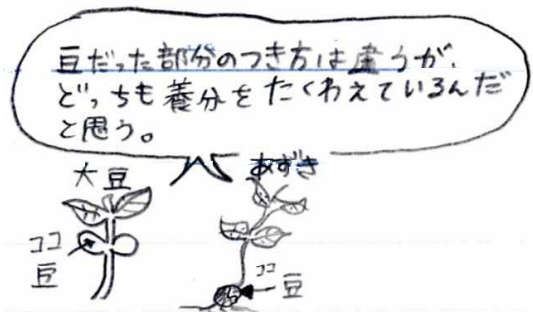 豆だった部分のつき方は違うが、
どっちも養分をたくわえているんだ
と思う。
大豆
あずき
ココ
豆
ココ
豆